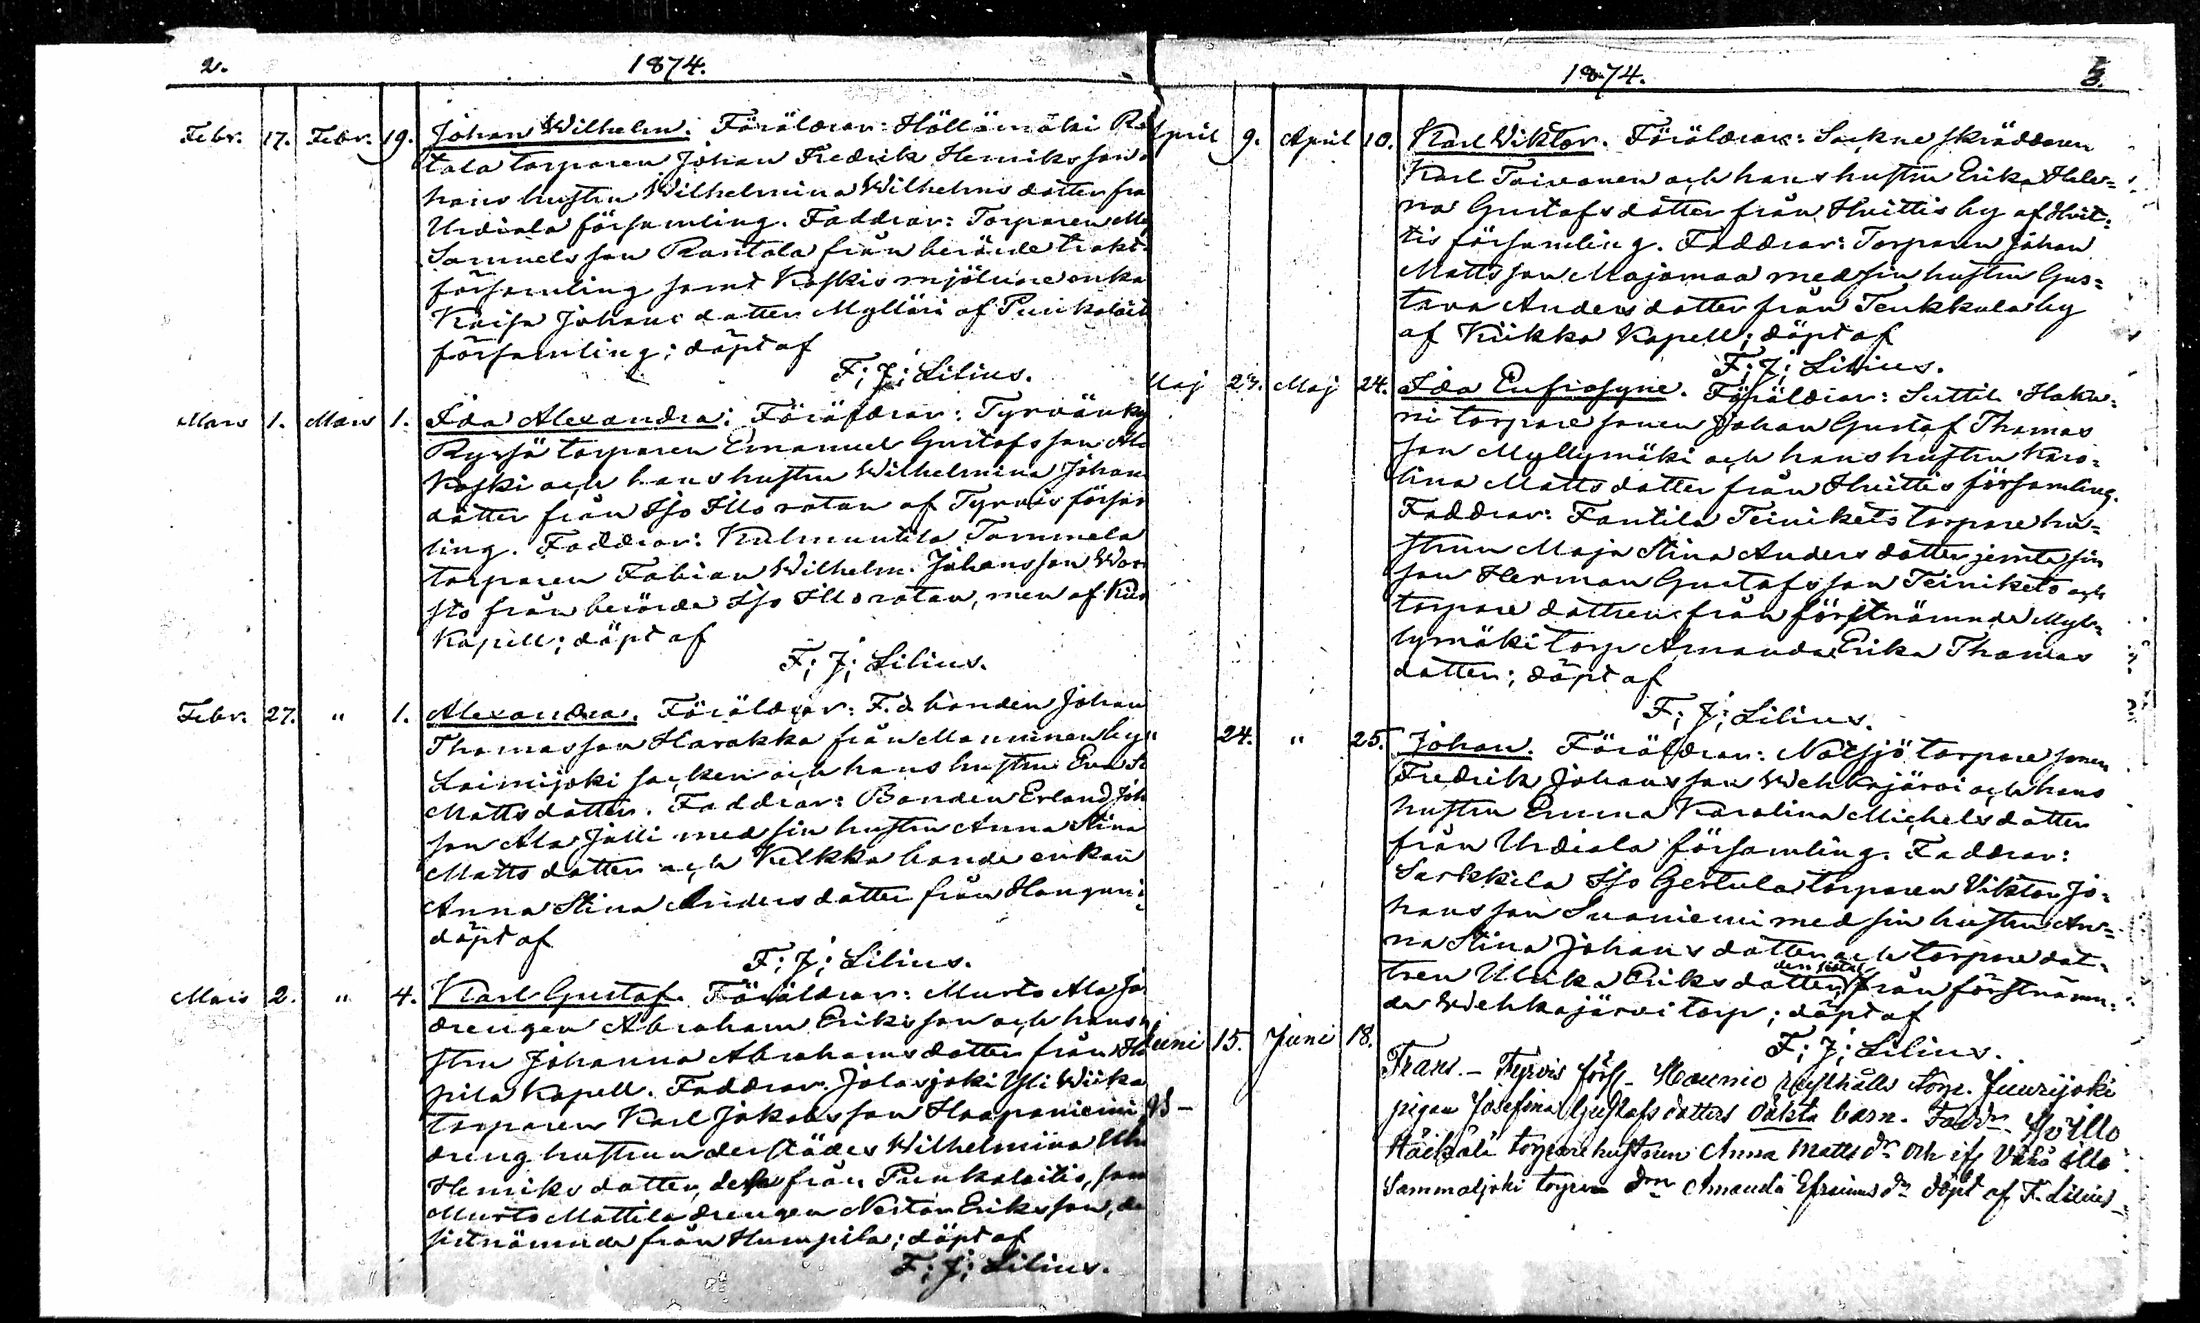 2.
1874.
Febr. 17. Febr. 19. Johan Wilhelm. Föräldrar: Höllömäki Ra
tala torparen Johan Fredrik Henriksson o
hans hustru Wilhelmina Wilhelms dotter frå
Urdiala församling. Faddrar: Torparen
Samuelsson Rantala från berörde trakt
församling samt Koskis mjölnare enka
Kaisa Johans dotter Mylläri af Punkalait
församling; döpt af
F; J; Lilius.
Mars 1. Mars 1. Ida Alexandra; Föräldrar: Tyrvänky
torparen Emanuel Gustafsson Ala
Koski och hans hustru Wilhelmina Johans
dotter från Iso Illo rotan af Tyrvis försam
ling. Faddrar: Kulmuntila Tammela
torparen Fabian Wilhelm Johansson
sto från berörde Iso Illo rotan, men af
Kapell; döpt af
F; J; Lilius.
Febr. 27. " 1. Alexandra. Föräldrar: F. d. bonden Johan
Thomasson Harakka från Manninen by
Loimijoki socken och hans hustru Eva
Matts dotter. Faddrar: Bonden Erland Joh
son Ala Jalli med sin hustru Anna Stina
Matts dotter och Kelkka bonde enkan
Anna Stina Anders dotter från
döpt af
F; J; Lilius.
Mars 2. " 4. Karl Gustaf. Föräldrar: Murto Ala
drengen Abraham Eriksson och hans hu
stru Johanna Abrahams dotter från Hu
pila Kapell. Faddrar: Jalasjoki Yli Wiika
torparen Karl Jakobsson Haapaniemi
dreng hustrun derstädes Wilhelmina
Henriks dotter, dessa från Punkalaitis, sam
Murto Mattila drengen Nestor Eriksson, de
sistnämnde från Humpila; döpt af
F; J; Lilius.
1874.
3.
April 9. April 10. Karl Wiktor. Föräldrar: Sockne skräddaren
Karl Toivonen och hans hustru Erika Hele=
na Gustafs dotter från Hvittis by af Hvit=
tis församling. Faddrar: Torparen Johan
Matts son Majamaa med sin hustru Gus=
tava Anders dotter från Tenkkula by
af Kiikka Kapell; döpt af
F; J; Lilius.
Maj 23. Maj 24. Ida Eufrosyne. Föräldrar: Suttila Haka=
ri torpare sonen Johan Gustaf Thomas
son Myllymäki och hans hustru Karo=
lina Matts dotter från Hvittis församling.
Faddrar: Fantila Teinikets torpare hu=
strun Maja Stina Anders dotter jemte sin
son Herman Gustafsson Teiniketo och
torpare dottren från förstnämnde Myl=
lymäki torp Amanda Erika Thomas
dotter; döpt af
F; J; Lilius.
" 24. " 25. Johan. Föräldrar: Notsjö torpare sonen
Fredrik Johansson Wehkajärvi och hans
hustru Emma Karolina Michels dotter
från Urdiala församling. Faddrar:
Sarkkila Iso Gertula torparen Viktor Jo=
hansson Suoniemi med sin hustru An=
na Stina Johans dotter och torpare dot=
tren Ulrika Eriks dotter, den sistn. från förstnämn=
de Wehkajärvi torp; döpt af
F; J; Lilius.
Juni 15. Juni 18.
Frans. - Tyrvis förs. Maunio rusthålls torp. Juurijoki
pigan Josefina Gustafs dotters oäkta barn. Faddr.
torpare hustrun Anna Matts dr och Vähä Illo
Sammaljoki torpare drn Amanda Efraims dr döpt af F. Lilius